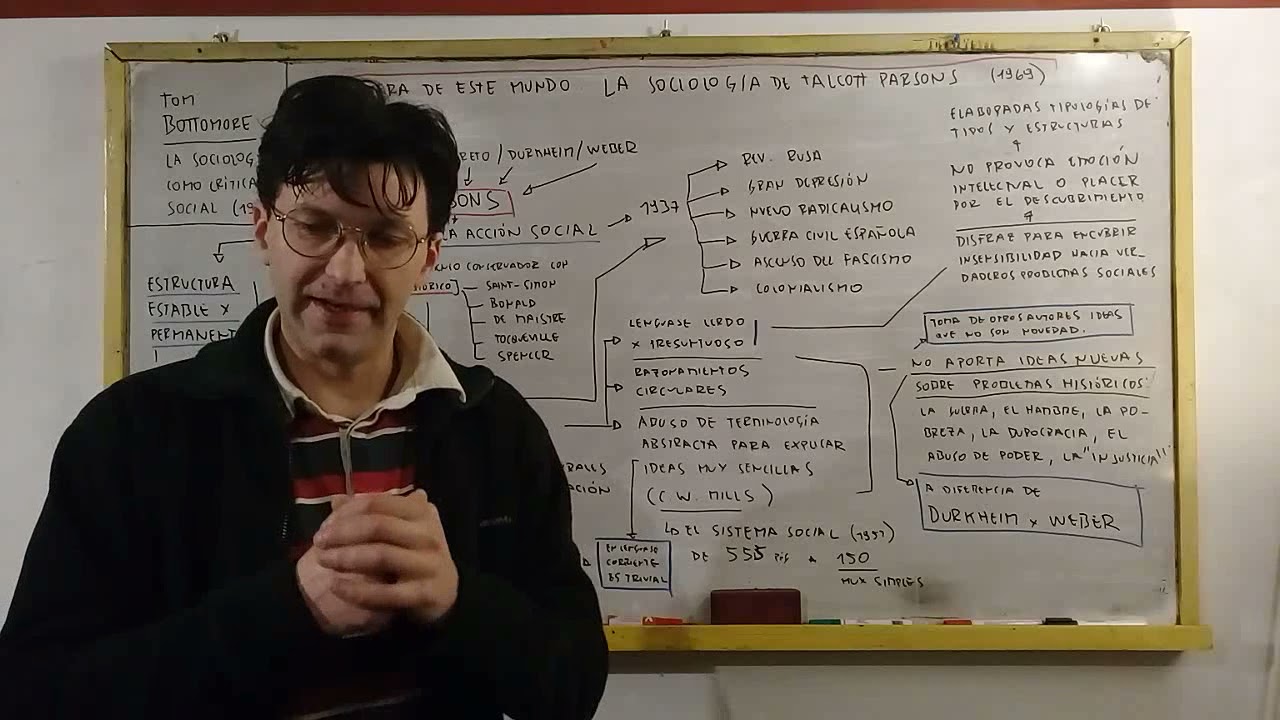 RA DE ESTE MUNDO. LA SOCIOLOGÍA DE TALCOTT PARSONS (1969)
TOM
BOTTOMORE
LA SOCIOLOG
COMO CRÍTICA
SOCIAL (19
RETO / DURKHEIM / WEBER
SONS
LA ACCIÓN SOCIAL
1937
REV. RUSA
GRAN DEPRESIÓN
NUEVO RADICALISMO
GUERRA CIVIL ESPAÑOLA
ASCENSO DEL FASCISMO
COLONIALISMO
ESTRUCTURA
ESTABLE Y
PERMANENT
CONSERVADOR CON
SAINT-SIMON
BONALD
DE MAISTRE
TOCQUEVILLE
SPENCER
LENGUAJE LERDO
Y PRESUNTUOSO
RAZONAMIENTOS
CIRCULARES
ABUSO DE TERMINOLOGÍA
ABSTRACTA PARA EXPLICAR
IDEAS MUY SENCILLAS
(C. W. MILLS)
EL SISTEMA SOCIAL (1951)
DE 555 PÁG A 150
MUY SIMPLES
EN LENGUAJE
CORRIENTE
ES TRIVIAL
ELABORADAS TIPOLOGÍAS DE
TIPOS Y ESTRUCTURAS
NO PROVOCA EMOCIÓN
INTELECTUAL O PLACER
POR EL DESCUBRIMIENTO
DISFRAZ PARA ENCUBRIR
INSENSIBILIDAD HACIA VER-
DADEROS PROBLEMAS SOCIALES
TOMA DE OTROS AUTORES IDEAS
QUE NO SON NOVEDAD.
NO APORTA IDEAS NUEVAS
SOBRE PROBLEMAS HISTÓRICOS:
LA GUERRA, EL HAMBRE, LA PO-
BREZA, LA BUROCRACIA, EL
ABUSO DE PODER, LA "INJUSTICIA"
A DIFERENCIA DE
DURKHEIM Y WEBER